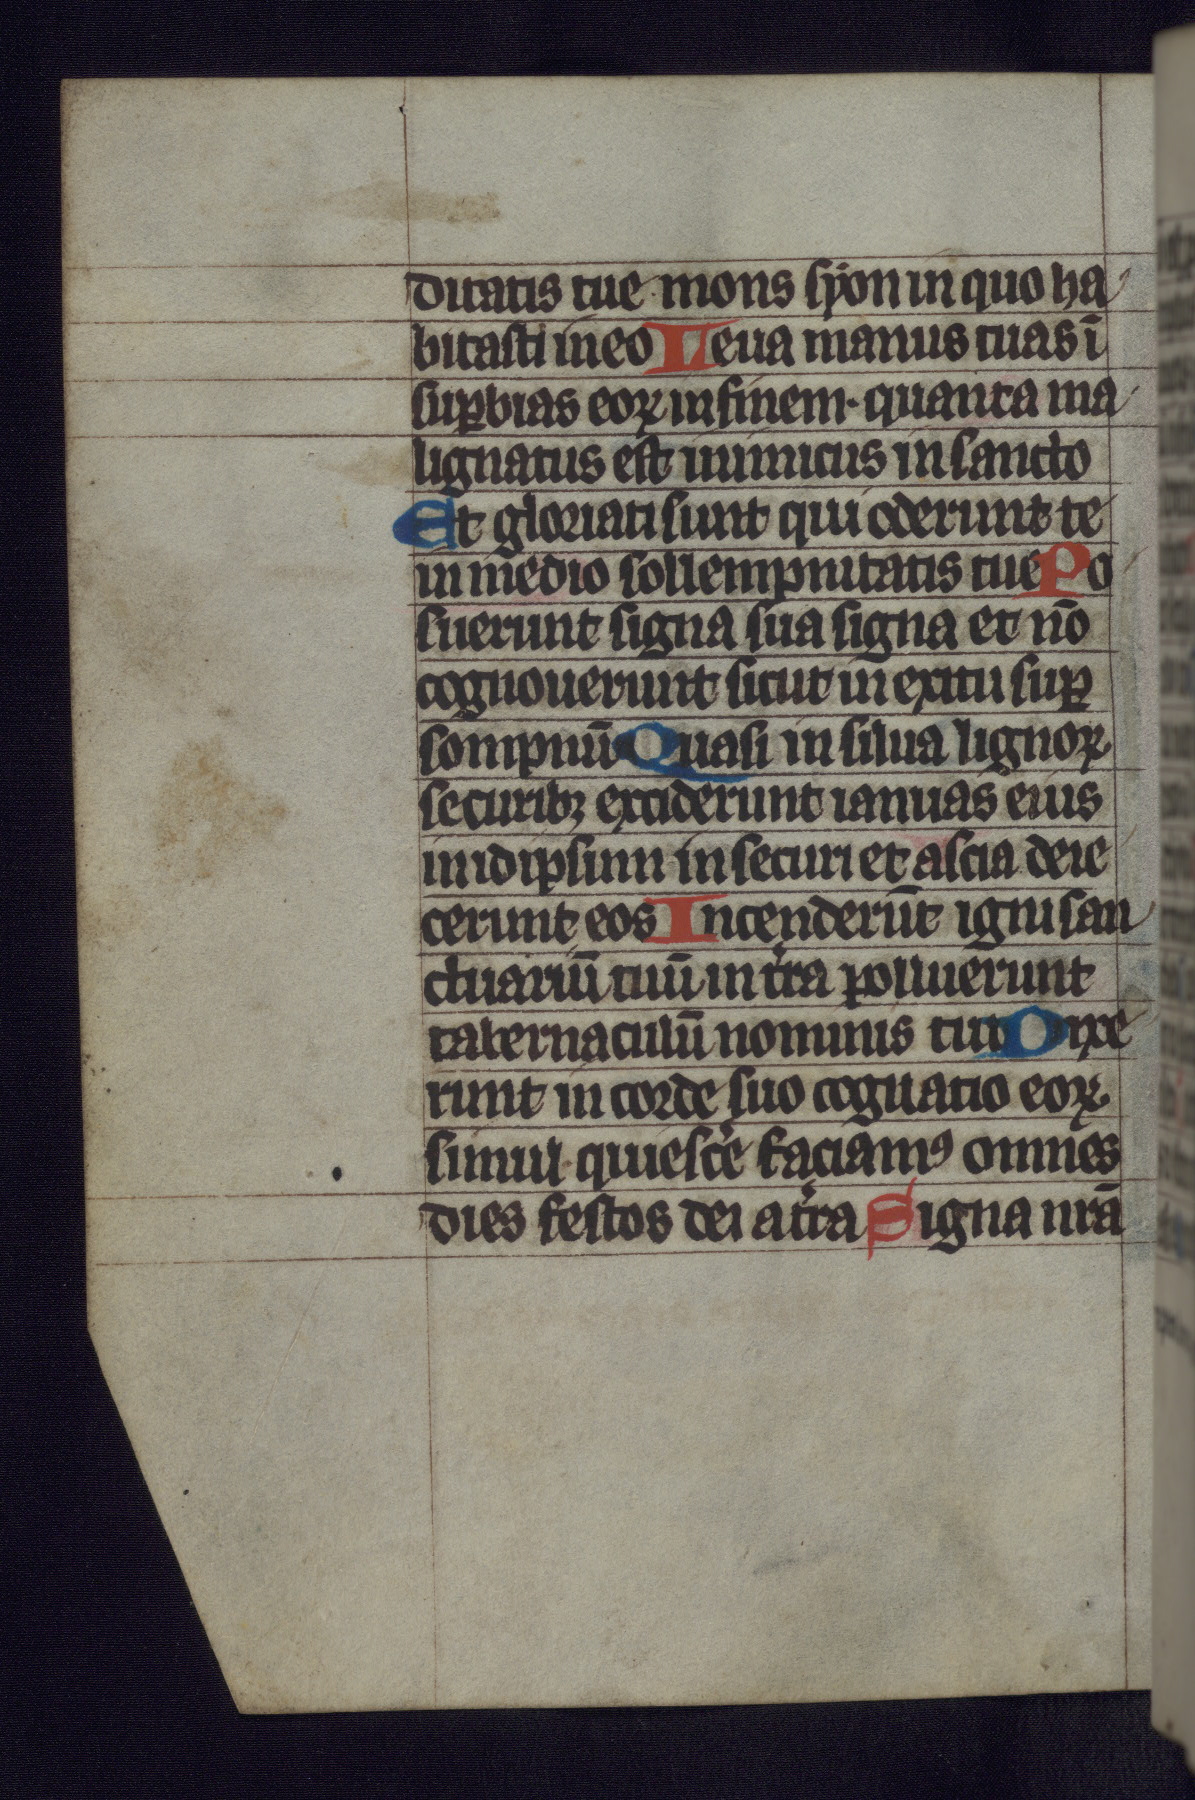 ditatis tue mons syon in quo ha
bitasti in eo Leua manus tuas ī
suꝑbias eoꝝ in finem · quanta ma
lignatus est inimicus in sancto
Et gloriati sunt qui oderunt te
in medio sollempnitatis tue Po
suerunt signa sua signa et nō
cognouerunt sicut in exitu suꝑ
sompnū Quasi in silua lignoꝝ
securibꝫ exciderunt ianuas eius
in idipsum in securi et ascia deie
cerunt eos Incenderūt igni san
ctuariū tuū in tͬra polluerunt
tabernaculū nominis tui Dixe
runt in corde suo cognatio eoꝝ
simul quiesce̾ faciamꝰ omnes
dies festos dei a tͬra Signa nrā